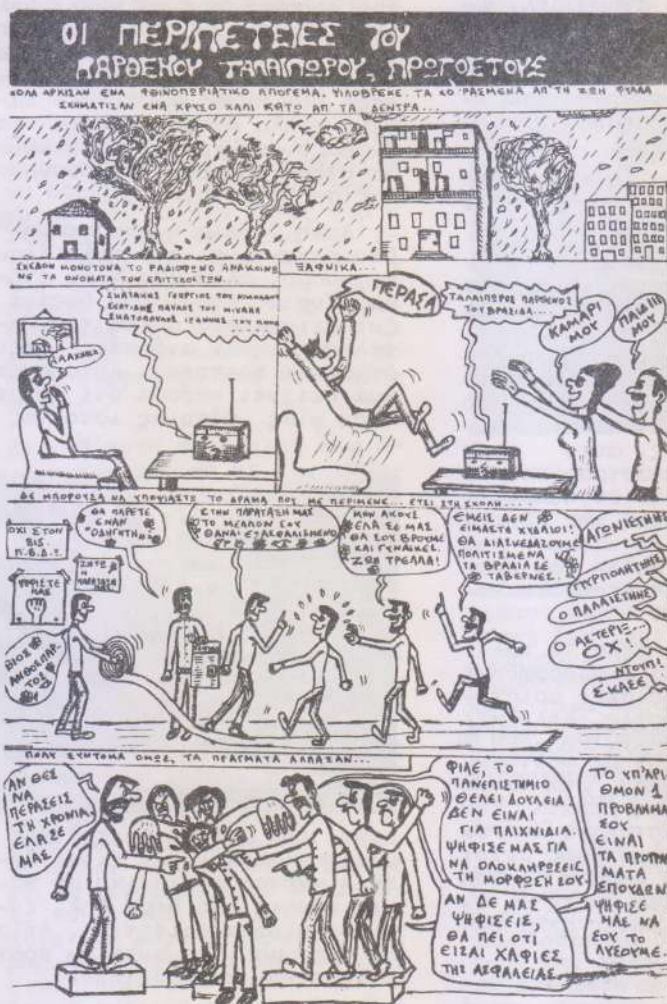 ΟΙ ΠΕΡΙΠΕΤΕΙΕΣ ΤΟΥ
ΠΑΡΘΕΝΟΥ ΤΑΛΑΙΠΩΡΟΥ, ΠΡΩΤΟΕΤΟΥΣ
ΟΛΑ ΑΡΧΙΣΑΝ ΕΝΑ ΦΘΙΝΟΠΩΡΙΑΤΙΚΟ ΑΠΟΓΕΜΑ. ΨΙΛΟΒΡΕΧΕ. ΤΑ ΚΟΥΡΑΣΜΕΝΑ ΑΠ' ΤΗ ΖΩΗ ΦΥΛΛΑ
ΣΧΗΜΑΤΙΖΑΝ ΕΝΑ ΧΡΥΣΟ ΧΑΛΙ ΚΑΤΩ ΑΠ' ΤΑ ΔΕΝΤΡΑ...
ΣΧΕΔΟΝ ΜΟΝΟΤΟΝΑ ΤΟ ΡΑΔΙΟΦΩΝΟ ΑΝΑΚΟΙΝΩ
ΝΕ ΤΑ ΟΝΟΜΑΤΑ ΤΩΝ ΕΠΙΤΥΧΟΝΤΩΝ...
ΓΕΩΡΓΙΟΣ ΤΟΥ ΝΙΚΟΛΑΟΥ
ΠΑΥΛΟΣ ΤΟΥ ΜΙΧΑΗΛ
ΣΚΑΤΟΠΟΥΛΟΣ ΙΩΑΝΝΗΣ ΤΟΥ
ΞΑΦΝΙΚΑ...
ΠΕΡΑΣΑ
ΤΑΛΑΙΠΩΡΟΣ ΠΑΡΘΕΝΟΣ
ΤΟΥ ΒΡΑΣΙΔΑ...
ΚΑΜΑΡΙ
ΜΟΥ
ΠΑΙΔΙ
ΜΟΥ
ΔΕ ΜΠΟΡΟΥΣΑ ΝΑ ΥΠΟΨΙΑΣΤΩ ΤΟ ΔΡΑΜΑ ΠΟΥ ΜΕ ΠΕΡΙΜΕΝΕ... ΕΤΣΙ ΣΤΗ ΣΧΟΛΗ....
ΟΧΙ ΣΤΟΝ
ΒΙΣ
Π.Β.Δ.Σ.
ΨΗΦΙΣΤΕ
ΜΑΣ
ΖΗΤΩ
Η
ΠΑΡΑΤΑΞΗ
ΜΑΣ
ΒΙΟΣ
ΑΝΘΟΣΠΑΡ
ΤΟΣ
ΘΑ ΠΑΡΕΤΕ
ΕΝΑΝ
"ΟΔΗΓΗΤΗ"
ΣΤΗΝ ΠΑΡΑΤΑΞΗ ΜΑΣ
ΤΟ ΜΕΛΛΟΝ ΣΟΥ
ΘΑΝΑΙ ΕΞΑΣΦΑΛΙΣΜΕΝΟ
ΜΗΝ ΑΚΟΥΣ
ΕΛΑ ΣΕ ΜΑΣ
ΘΑ ΣΟΥ ΒΡΟΥΜΕ
ΚΑΙ ΓΥΝΑΙΚΕΣ.
ΖΩΗ ΤΡΕΛΛΑ!
ΕΜΕΙΣ ΔΕΝ
ΕΙΜΑΣΤΕ ΧΥΔΑΙΟΙ!
ΘΑ ΔΙΑΣΚΕΔΑΖΟΥΜΕ
ΠΟΛΙΤΙΣΜΕΝΑ
ΤΑ ΒΡΑΔΙΑ ΣΕ
ΤΑΒΕΡΝΕΣ.
ΑΓΩΝΙΣΤΗΣ
ΠΥΡΠΟΛΗΤΗΣ
Ο ΠΑΛΑΙΣΤΗΣ
Ο ΑΣΤΕΡΙΞ...
ΟΧΙ!
ΝΤΟΥΠ!
ΣΚΑΣΕ
ΠΟΛΥ ΣΥΝΤΟΜΑ ΟΜΩΣ, ΤΑ ΠΡΑΓΜΑΤΑ ΑΛΛΑΞΑΝ...
ΑΝ ΘΕΣ
ΝΑ
ΠΕΡΑΣΕΙΣ
ΤΗ ΧΡΟΝΙΑ,
ΕΛΑ ΣΕ
ΜΑΣ
ΦΙΛΕ, ΤΟ
ΠΑΝΕΠΙΣΤΗΜΙΟ
ΘΕΛΕΙ ΔΟΥΛΕΙΑ.
ΔΕΝ ΕΙΝΑΙ
ΓΙΑ ΠΑΙΧΝΙΔΙΑ.
ΨΗΦΙΣΕ ΜΑΣ ΓΙΑ
ΝΑ ΟΛΟΚΛΗΡΩΣΕΙΣ
ΤΗ ΜΟΡΦΩΣΗ ΣΟΥ.
ΑΝ ΔΕ ΜΑΣ
ΨΗΦΙΣΕΙΣ,
ΘΑ ΠΕΙ ΟΤΙ
ΕΙΣΑΙ ΧΑΦΙΕΣ
ΤΗΣ ΑΣΦΑΛΕΙΑΣ
ΤΟ ΥΠ' ΑΡΙ-
ΘΜΟΝ 1
ΠΡΟΒΛΗΜΑ
ΣΟΥ
ΕΙΝΑΙ
ΤΑ ΠΡΟΓΡΑΜ
ΜΑΤΑ
ΣΠΟΥΔΩΝ
ΨΗΦΙΣΕ
ΜΑΣ ΝΑ
ΣΟΥ ΤΟ
ΛΥΣΟΥΜΕ.